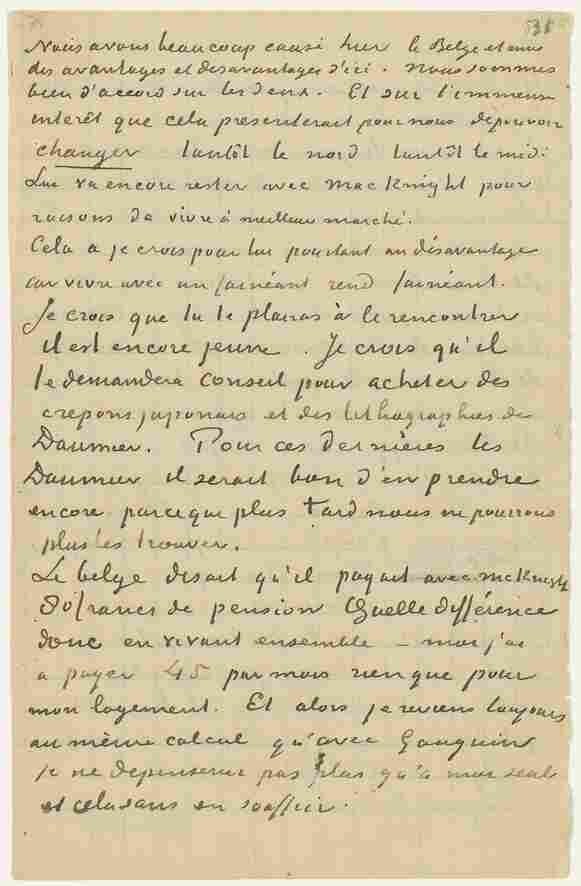 31
Nous avons beaucoup causé hier le Belge et moi
des avantages et desavantages d'ici. Nous sommes
bien d'accord sur les deux. Et sur l'immense
interêt que cela presenterait pour nous de pouvoir
changer tantôt le nord tantôt le midi.
Lui va encore rester avec MacKnight pour
raisons de vivre à meilleur marché.
Cela a je crois pour lui pourtant un désavantage
car vivre avec un fainéant rend fainéant.
Je crois que tu te plairas à le rencontrer
il est encore jeune. Je crois qu'il
te demandera conseil pour acheter des
crepons japonais et des lithographies de
Daumier. Pour ces dernières les
Daumier il serait bon d'en prendre
encore parceque plus tard nous ne pourrons
plus les trouver.
Le belge disait qu'il payait avec mcKnight
80 francs de pension Quelle différence
donc en vivant ensemble – moi j'ai
a payer 45 par mois rien que pour
mon logement. Et alors je reviens toujours
au même calcul qu'avec Gauguin
je ne depenserai pas plus qu'à moi seul
et cela sans en souffrir.